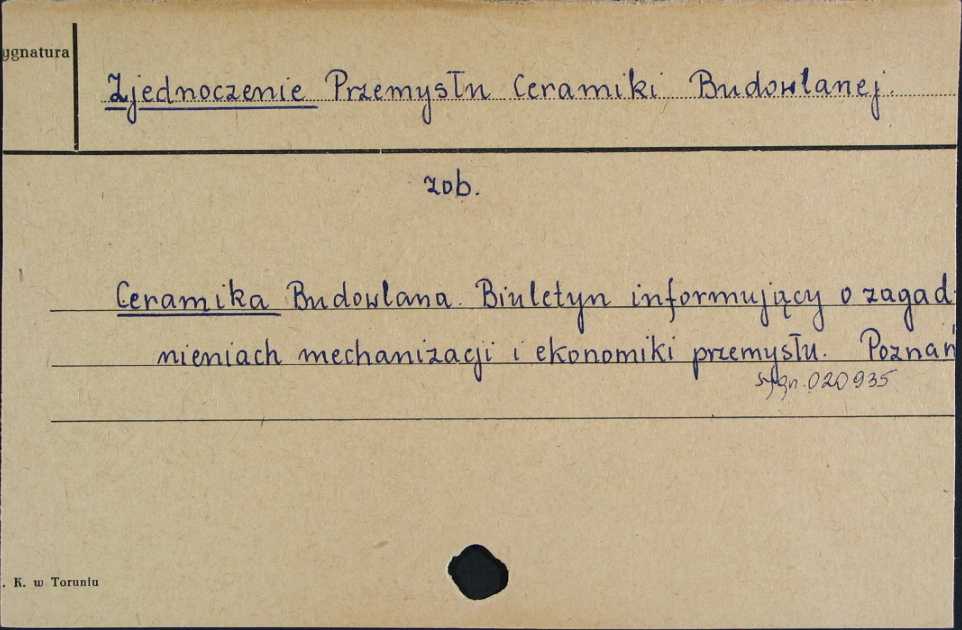 ygnatura
Zjednoczenie Przemysłu Ceramiki Budowlanej.
zob.
Ceramika Budowlana. Biuletyn informujący o zagad-
nieniach mechanizacji i ekonomiki przemysłu. Poznań
sygn. 020935
. K. w Toruniu